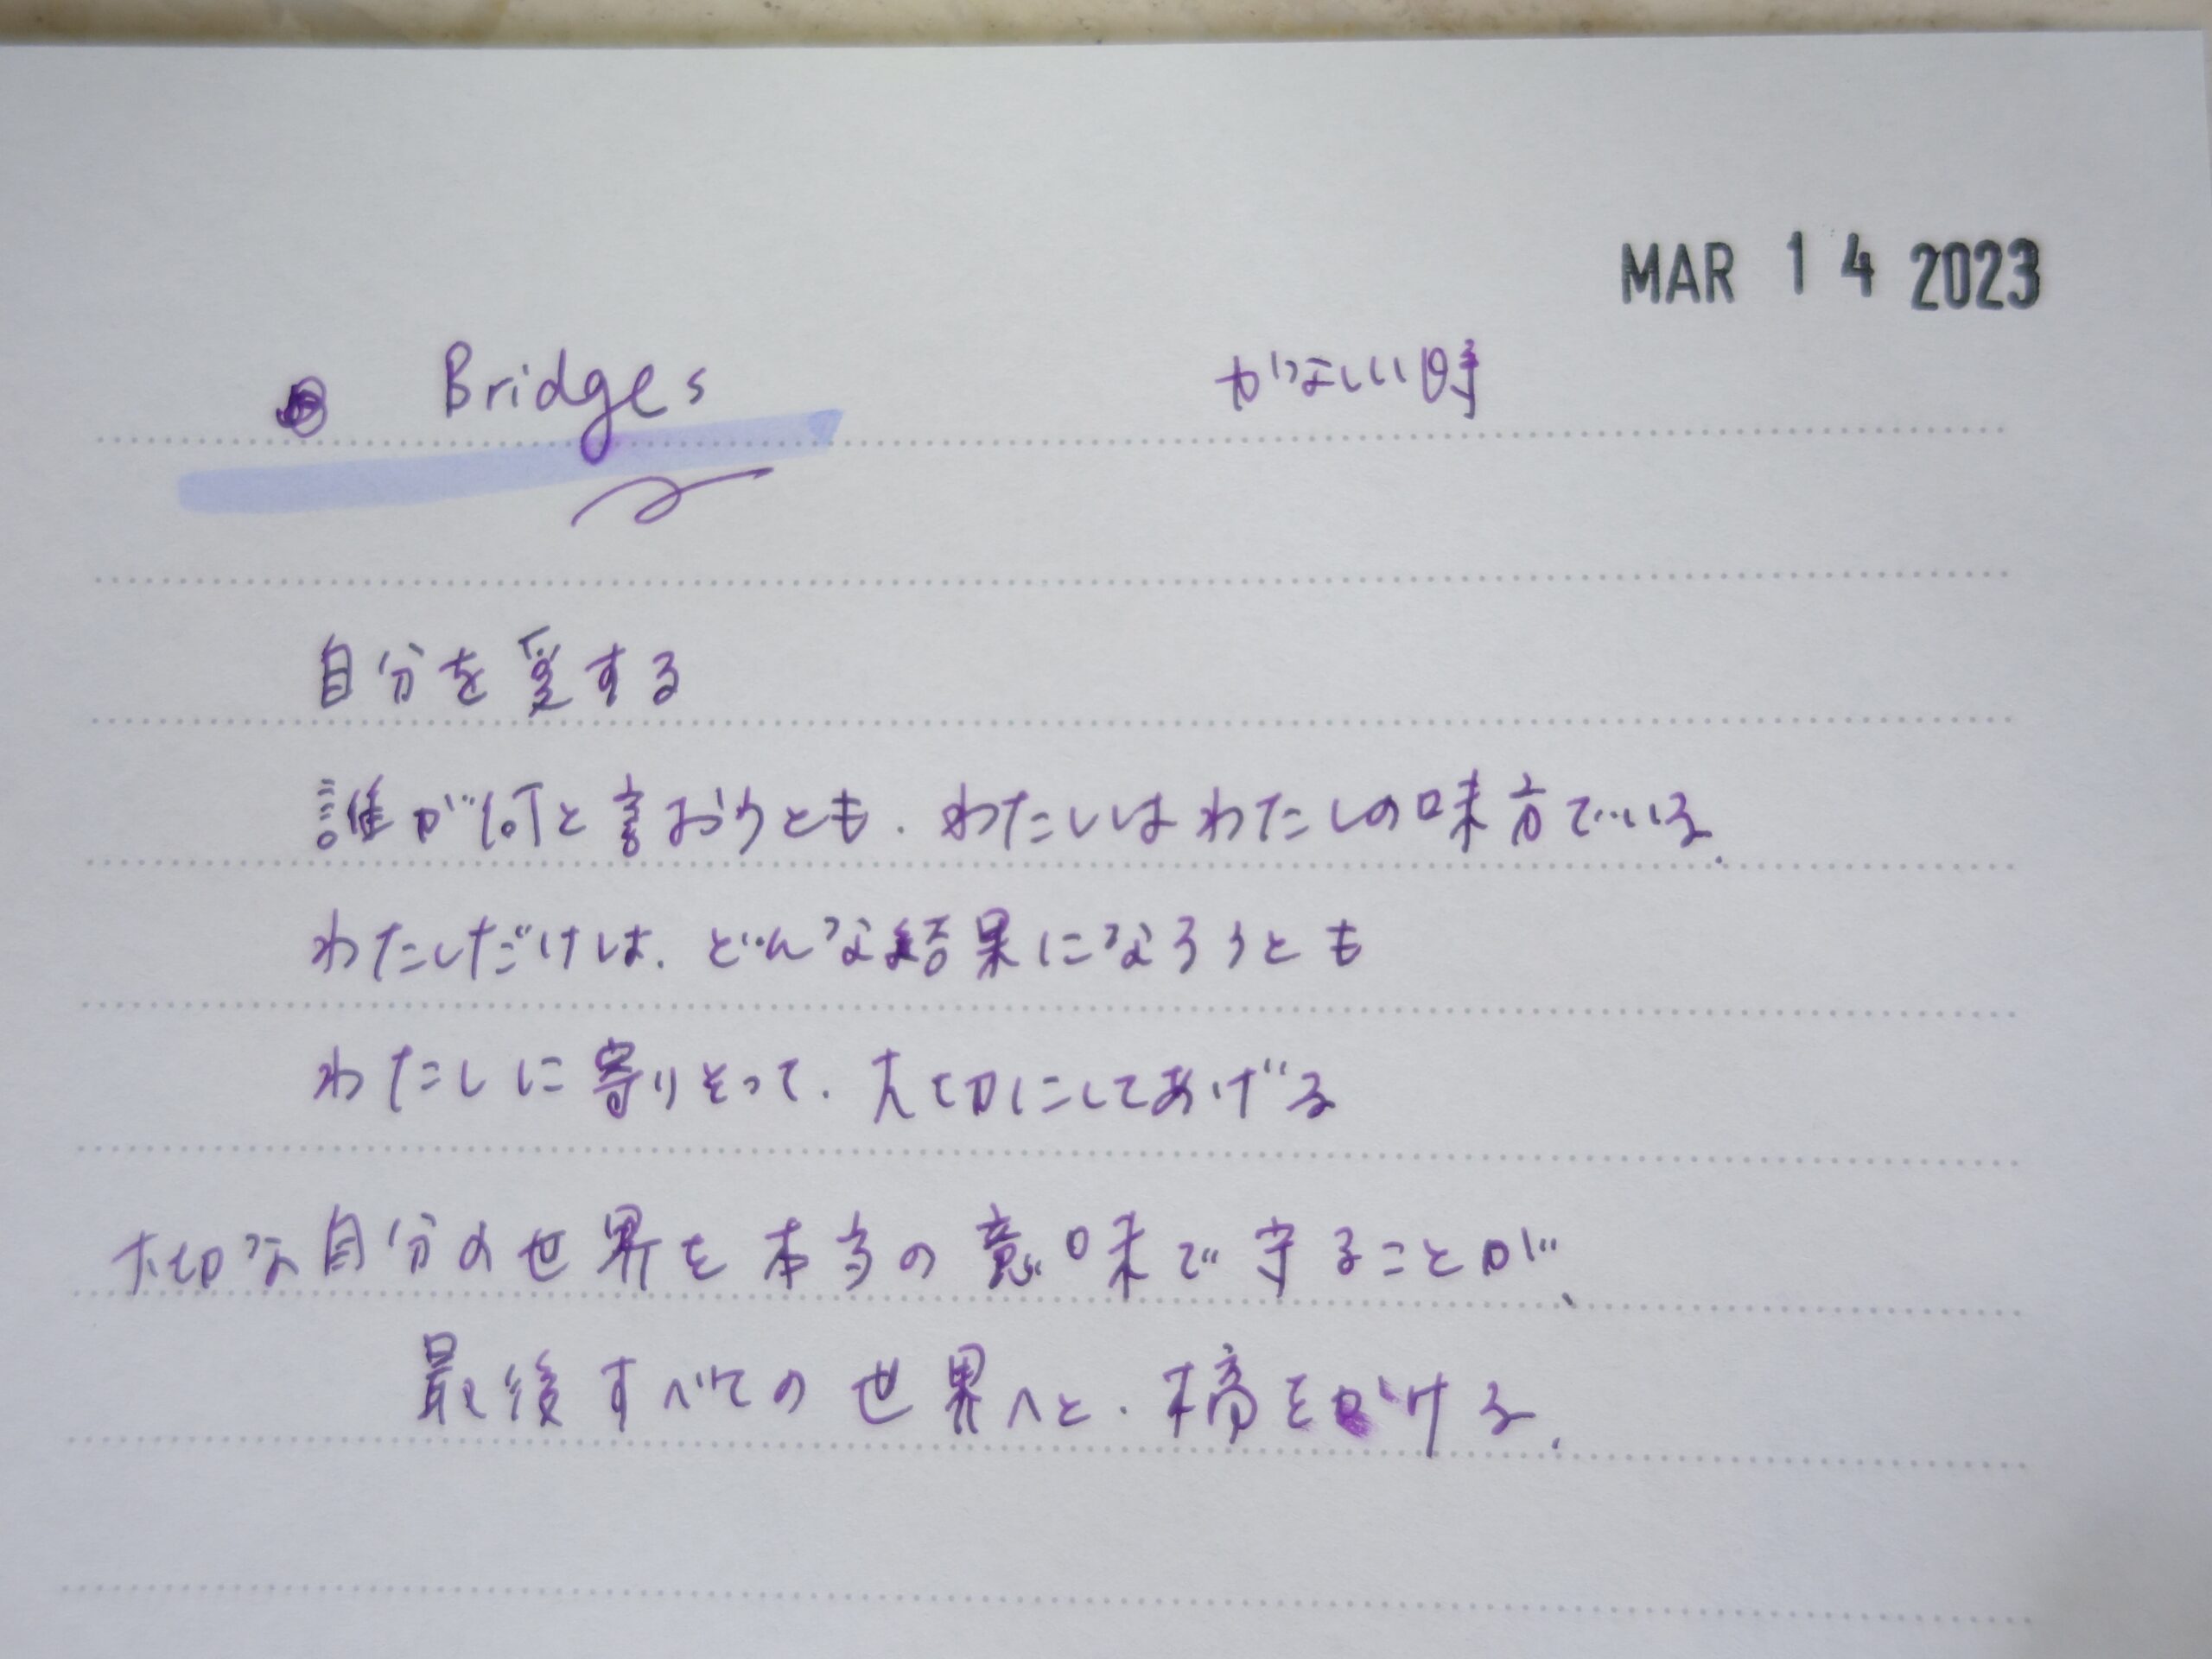 MAR 14 2023
Bridges かなしい時
自分を愛する
誰が何と言おうとも、わたしはわたしの味方でいる。
わたしだけは、どんな結果になろうとも
わたしに寄りそって、大切にしてあげる
大切な自分の世界を本当の意味で守ることが、
最後すべての世界へと、橋をかける。